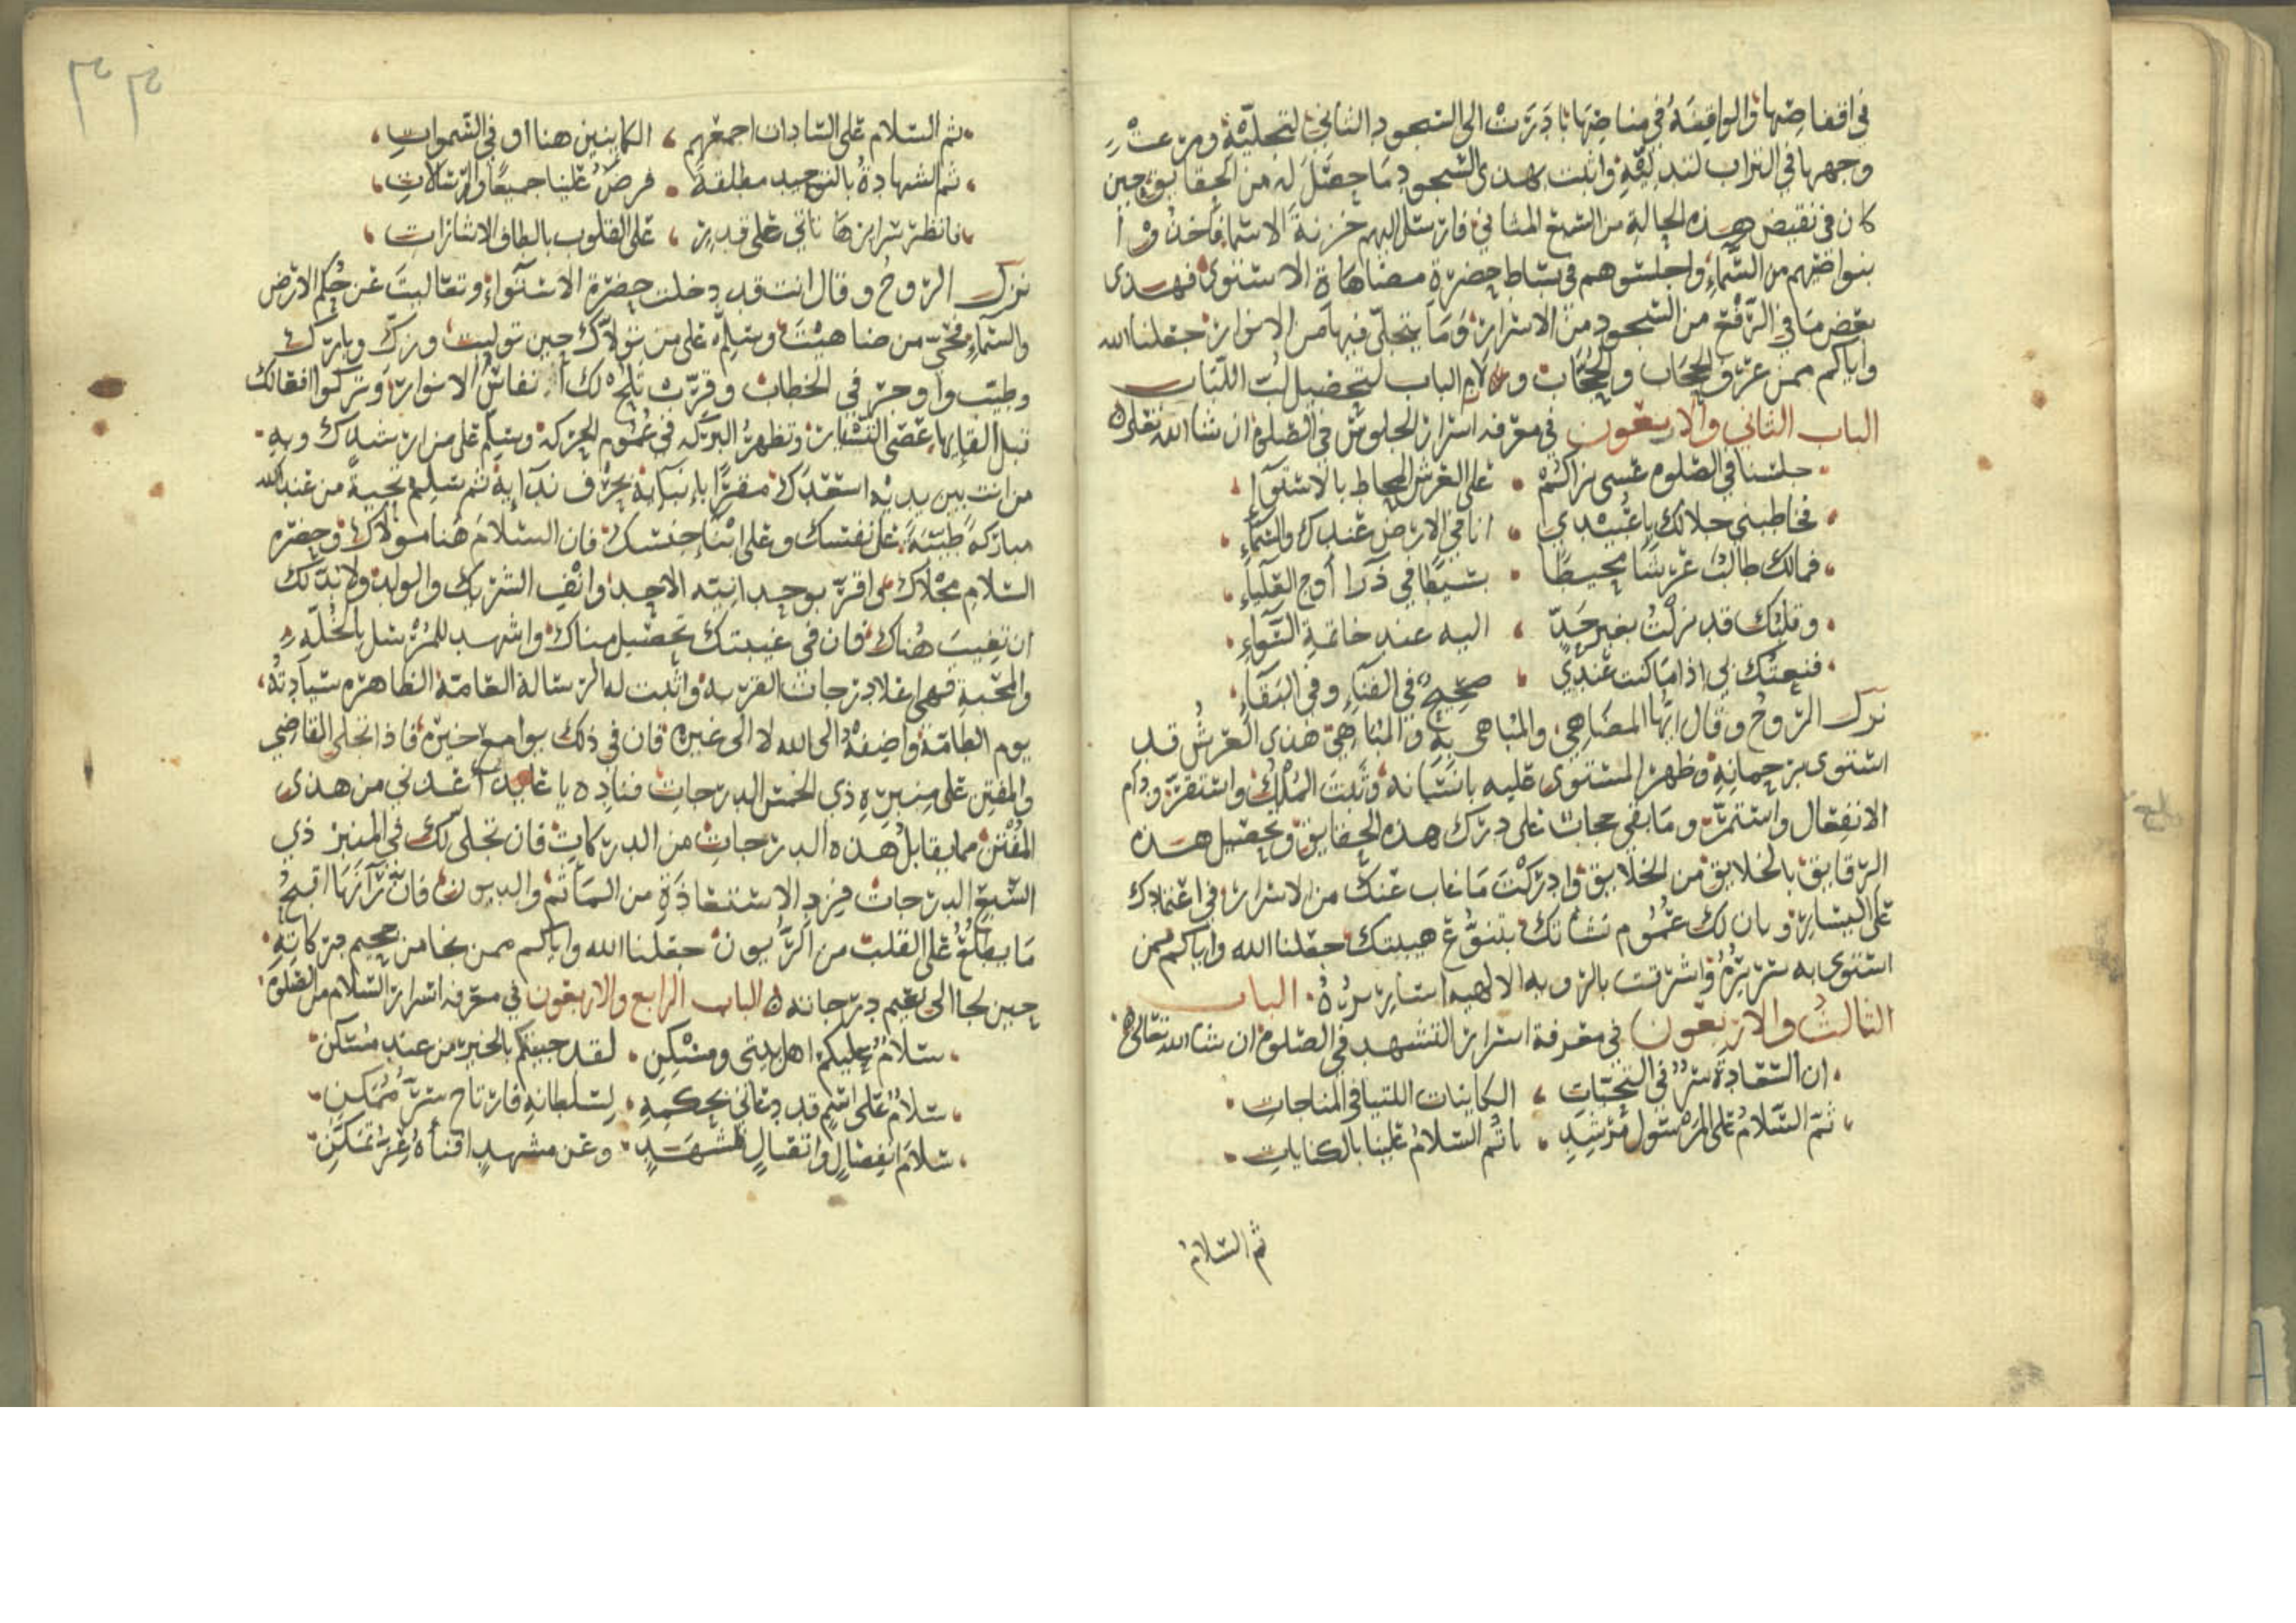 في اقفاصها والواقفة في مناصها بادرت الى السجود الثاني لتجليه ومرغت
وجهها في التراب لتدليه واثبت بهذى السجود ما حصل له من الحقايق حين
كان في نقيض هذه الحالة من السبع المثاني فارسل اليهم خزنة الاسما فاخذوا
بنواصيهم من السماء واجلسوهم في بساط حضرة مضاهاة الاستوى فهذى
بعض ما في الرفع من السجود من الاسرار وما يتجلى فيها من الانوار جعلنا الله
واياكم ممن عرف الحجاب والحجاب ولازم الباب لتحصيل لب اللباب
الباب الثاني والاربعون في معرفه اسرار الجلوس في الصلوة ان شا الله تعلى
جلسنا في الصلوة عسى نراكم على العرش المحاط بالاستواء
فخاطبني جلالك يا عبيدي انا في الارض عندك والسماء
فمالك طالب عرشا محيطا بسيطا في ذرا أوج العلياء
وقلبك قد نزلت بغير حد اليه عند خاتمة السواء
فنعتك لي اذا ما كنت عندي صحيح في الفناء وفي البقاء
نزل الروح وقال ايها المضاهي والمباهى به والمتناهي هذى العرش قد
استوى برحمانه وظهر المستوى عليه بانسانه وثبت الملك واستقر ودام
الانفعال واستمر وما بقي حجاب على درك هذه الحقايق وتحصيل هذه
الرقايق بالخلايق من الخلايق وادركت ما غاب عنك من الاسرار في اعتمادك
على اليسار وبان لك عموم نشاتك بتنوع هيبتك جعلنا الله واياكم ممن
استوى به سريره واشرقت بالروبه الالهيه اساريره الباب
الثالث والاربعون في معرفة اسرار التشهد في الصلوة ان شا الله تعالى
ان السعادة سر في التحيات الكاينات اللتيا في المناجات
ثم السلام على المرسول مرشد ثم السلام علينا بالكنايات
ثم السلام
٣٣
ثم السلام على السادات اجمعهم الكاينين هنا او في السموات
ثم الشهادة بالتوحيد مطلقة فرض علينا جميعا والرسالات
فانظر سرايرها تاتي على قدر على القلوب بالطاف الاشارات
نزل الروح وقال انت قد دخلت حضرة الاستواء وتعاليت عن حكم الارض
والسماء فحي من ضاهيت وسلم على من تولاك حين توليت وزك وبارك
وطيب واوجز في الخطاب وقرب تلح لك انفاس الانوار وتزكوا افعالك
قبل القايها عصى التسيار وتظهر البركه في عموم الحركه وسلم على من ارشدك وبه
من انت بين يديه استعدك مقرا بانبايه بحرف ندايه ثم سلم تحية من عند الله
مباركة طيبة على نفسك وعلى ابناء جنسك فان السلام هنا مولاك وحضرة
السلام مجلاك واقر بوحدانيته الاحد وانف الشريك والولد ولا بد لك
ان تغيب هناك فان في غيبتك تحصيل مناك واشهد للمرسل بالخلة
والمحبة فهما اعلا درجات القربه واثبت له الرسالة العامة الظاهره سيادته
يوم الطامة واضفه الى الله لا الى غيره فان في ذلك جوامع خيره فاذا تجلى القاضي
والمفتن على منبره ذي الخمس الدرجات فناده يا عابد اعدني من هذى
المفتن مما يقابل هذه الدرجات من الدركات فان تجلى لك في المنبر ذي
السبع الدرجات فزد الاستعاذة من الماثم والديون فان رانها اقبح
ما يطلع على القلب من الريون جعلنا الله واياكم ممن نجا من جحيم دركاته
حين لجا الى نعيم درجاته الباب الرابع والاربعون في معرفه اسرار السلام من الصلوة
سلام عليكم اهل بيتى ومسكن لقد جيتكم بالخير من عند مسكن
سلام على اسم قد دعاني بحكمه لسلطانه فارتاح سر ممكن
سلام انفصال واتصال لمشهد وعن مشهد افناه عز تمكن